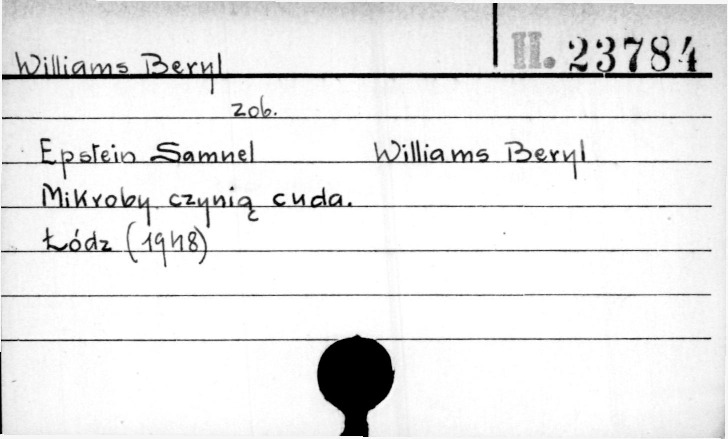 Williams Beryl II. 23784
zob.
Epstein Samuel Williams Beryl
Mikroby czynią cuda.
Łódz (1948)